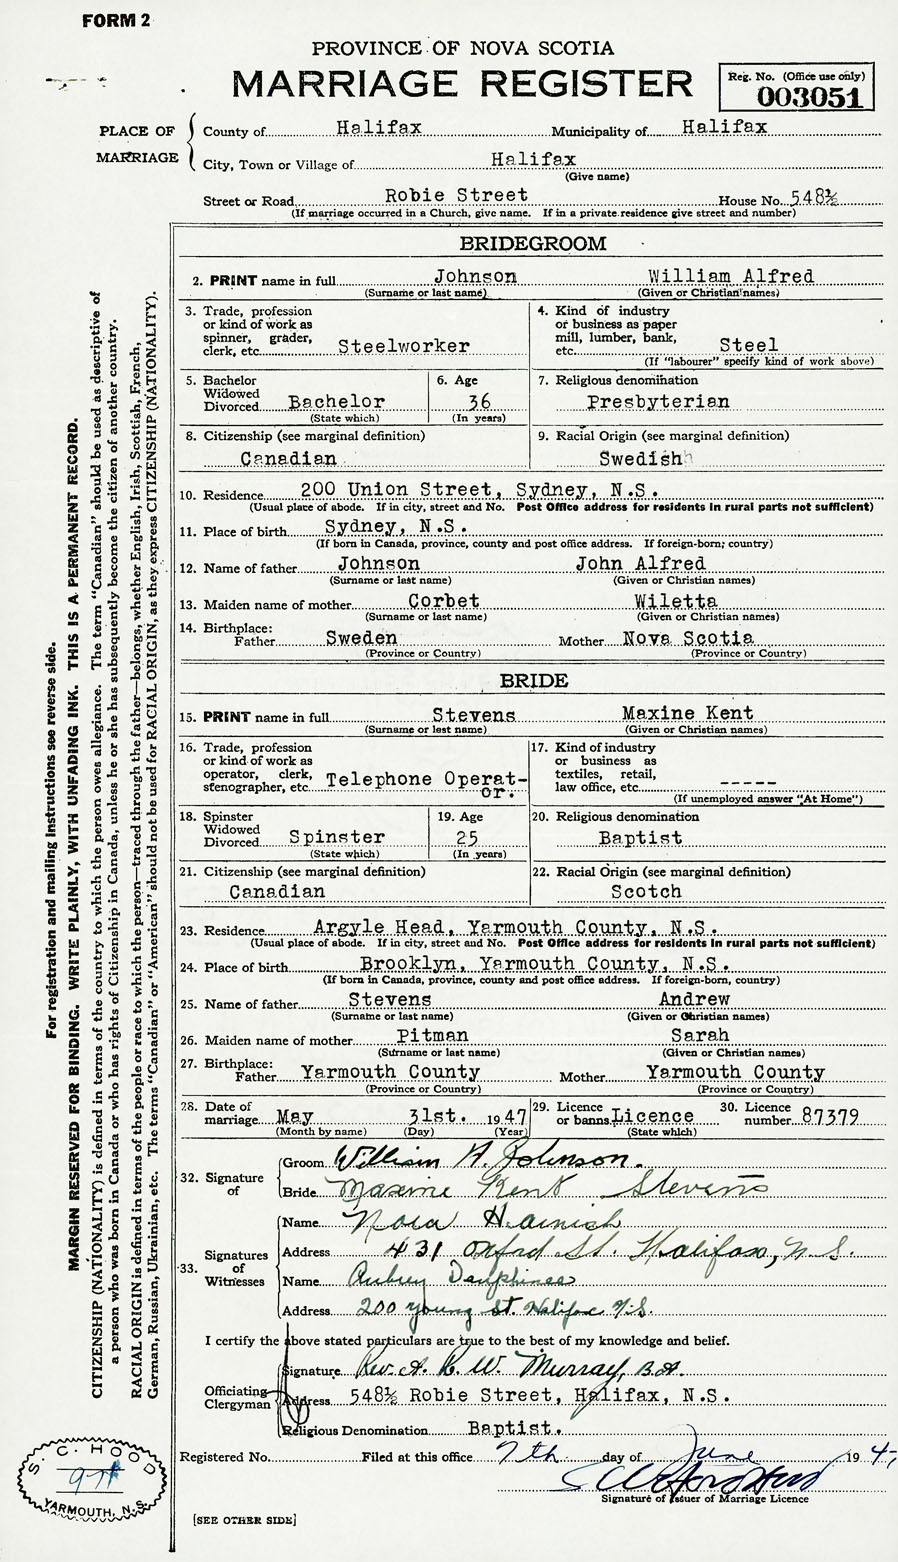 FORM 2
PROVINCE OF NOVA SCOTIA
MARRIAGE REGISTER
Reg. No. (Office use only)
003051
PLACE OF MARRIAGE
County of Halifax Municipality of Halifax
City, Town or Village of Halifax
(Give name)
Street or Road Robie Street House No. 548½
(If marriage occurred in a Church, give name. If in a private residence give street and number)
BRIDEGROOM
2. PRINT name in full Johnson William Alfred
(Surname or last name) (Given or Christian names)
3. Trade, profession
or kind of work as
spinner, grader,
clerk, etc. Steelworker
4. Kind of industry
or business as paper
mill, lumber, bank,
etc. Steel
(If "labourer" specify kind of work above)
5. Bachelor
Widowed
Divorced Bachelor
(State which)
6. Age
36
(In years)
7. Religious denomination
Presbyterian
8. Citizenship (see marginal definition)
Canadian
9. Racial Origin (see marginal definition)
Swedish
10. Residence 200 Union Street, Sydney, N.S.
(Usual place of abode. If in city, street and No. Post Office address for residents in rural parts not sufficient)
11. Place of birth Sydney, N.S.
(If born in Canada, province, county and post office address. If foreign-born; country)
12. Name of father Johnson John Alfred
(Surname or last name) (Given or Christian names)
13. Maiden name of mother Corbet Wiletta
(Surname or last name) (Given or Christian names)
14. Birthplace:
Father Sweden Mother Nova Scotia
(Province or Country) (Province or Country)
BRIDE
15. PRINT name in full Stevens Maxine Kent
(Surname or last name) (Given or Christian names)
16. Trade, profession
or kind of work as
operator, clerk,
stenographer, etc. Telephone Operat-
or.
17. Kind of industry
or business as
textiles, retail,
law office, etc. -----
(If unemployed answer "At Home")
18. Spinster
Widowed
Divorced Spinster
(State which)
19. Age
25
(In years)
20. Religious denomination
Baptist
21. Citizenship (see marginal definition)
Canadian
22. Racial Origin (see marginal definition)
Scotch
23. Residence Argyle Head, Yarmouth County, N.S.
(Usual place of abode. If in city, street and No. Post Office address for residents in rural parts not sufficient)
24. Place of birth Brooklyn, Yarmouth County, N.S.
(If born in Canada, province, county and post office address. If foreign-born, country)
25. Name of father Stevens Andrew
(Surname or last name) (Given or Christian names)
26. Maiden name of mother Pitman Sarah
(Surname or last name) (Given or Christian names)
27. Birthplace:
Father Yarmouth County Mother Yarmouth County
(Province or Country) (Province or Country)
28. Date of
marriage May 31st. 1947
(Month by name) (Day) (Year)
29. Licence
or banns Licence
(State which)
30. Licence
number 87379
32. Signature of
Groom William A. Johnson.
Bride Maxine Kent Stevens
33. Signatures of Witnesses
Name Nora
Address 431 Oxford St. Halifax, N.S.
Name Aubrey Dauphinee
Address 200 Young St. Halifax N.S.
I certify the above stated particulars are true to the best of my knowledge and belief.
Officiating Clergyman
Signature Rev. A. K. W. Murray, B.A.
Address 548½ Robie Street, Halifax, N.S.
Religious Denomination Baptist.
Registered No. Filed at this office 7th day of June 194
Signature of Issuer of Marriage Licence
[SEE OTHER SIDE]
For registration and mailing instructions see reverse side.
MARGIN RESERVED FOR BINDING. WRITE PLAINLY, WITH UNFADING INK. THIS IS A PERMANENT RECORD.
CITIZENSHIP (NATIONALITY) is defined in terms of the country to which the person owes allegiance. The term "Canadian" should be used as descriptive of
a person who was born in Canada or who has rights of Citizenship in Canada, unless he or she has subsequently become the citizen of another country.
RACIAL ORIGIN is defined in terms of the people or race to which the person—traced through the father—belongs, whether English, Irish, Scottish, French,
German, Russian, Ukrainian, etc. The terms "Canadian" or "American" should not be used for RACIAL ORIGIN, as they express CITIZENSHIP (NATIONALITY).
S. C. HOOD
YARMOUTH, N.S.